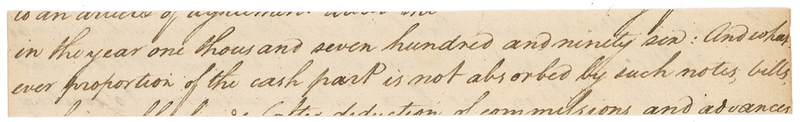 to an article of agreement
in the year one thousand and seven hundred and ninety six: And what
ever proportion of the cash part is not absorbed by such notes, bills,
(after deduction of commissions and advances